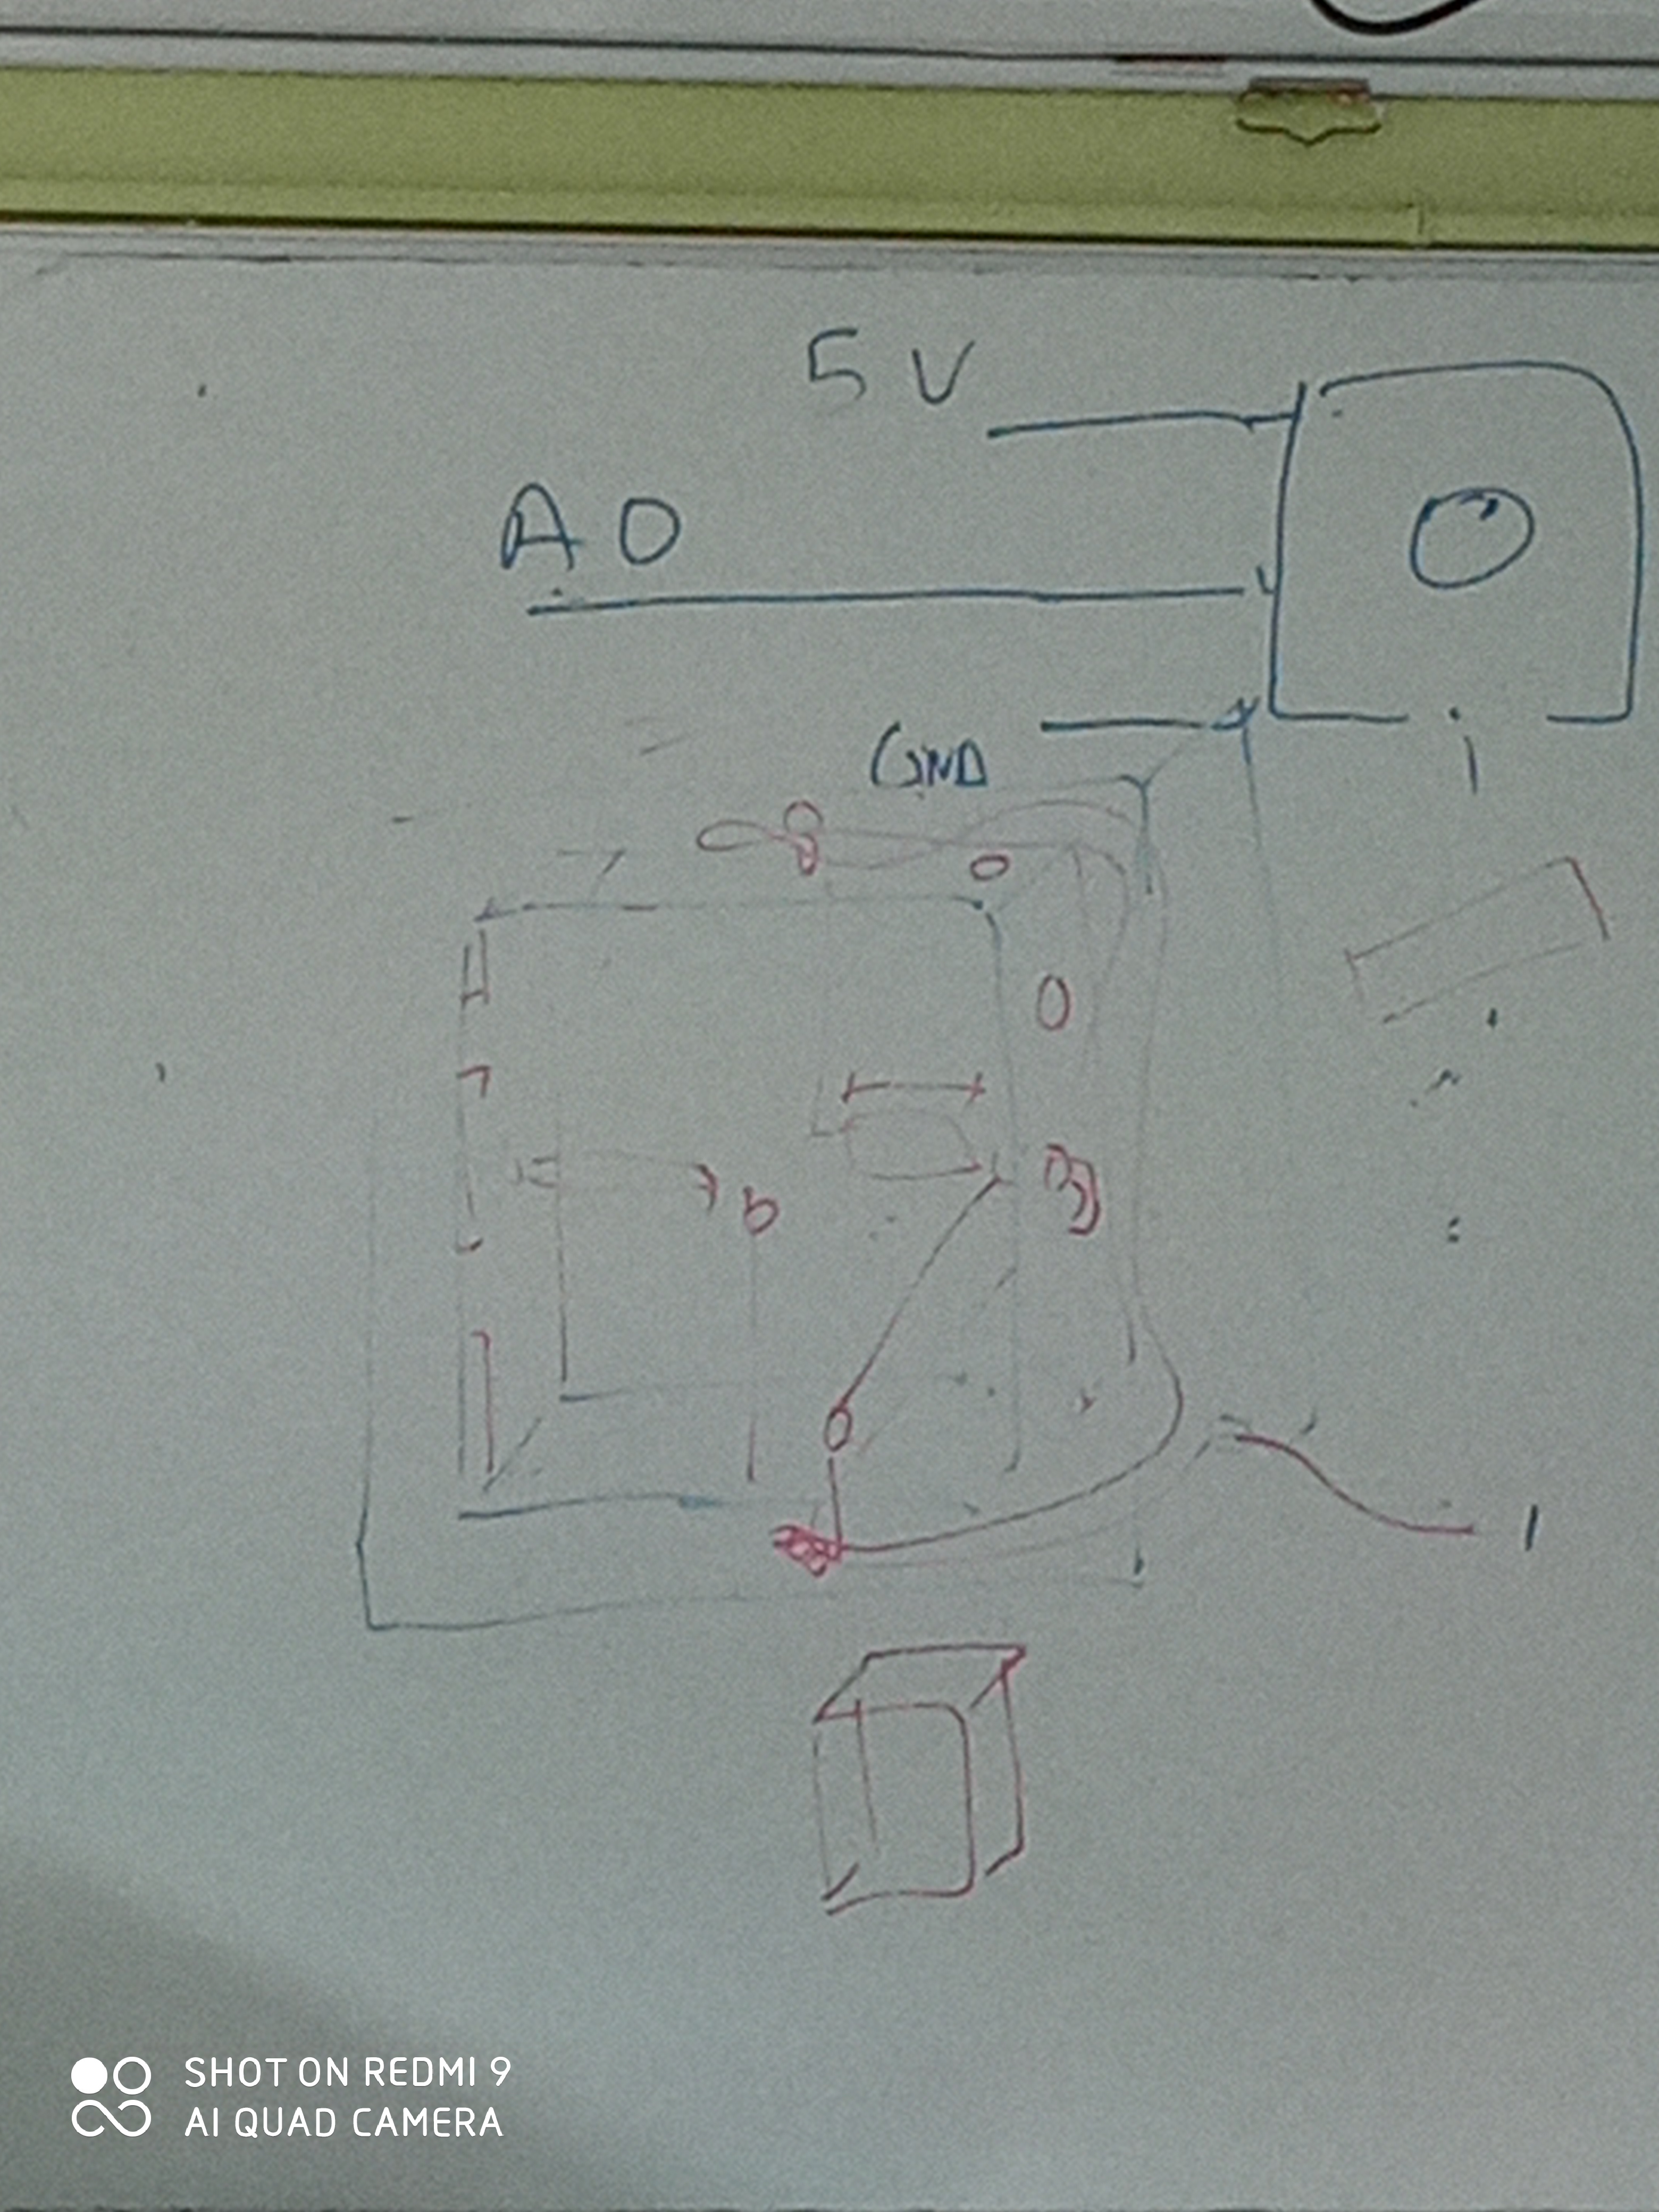 5V
A0
GND
SHOT ON REDMI 9
AI QUAD CAMERA